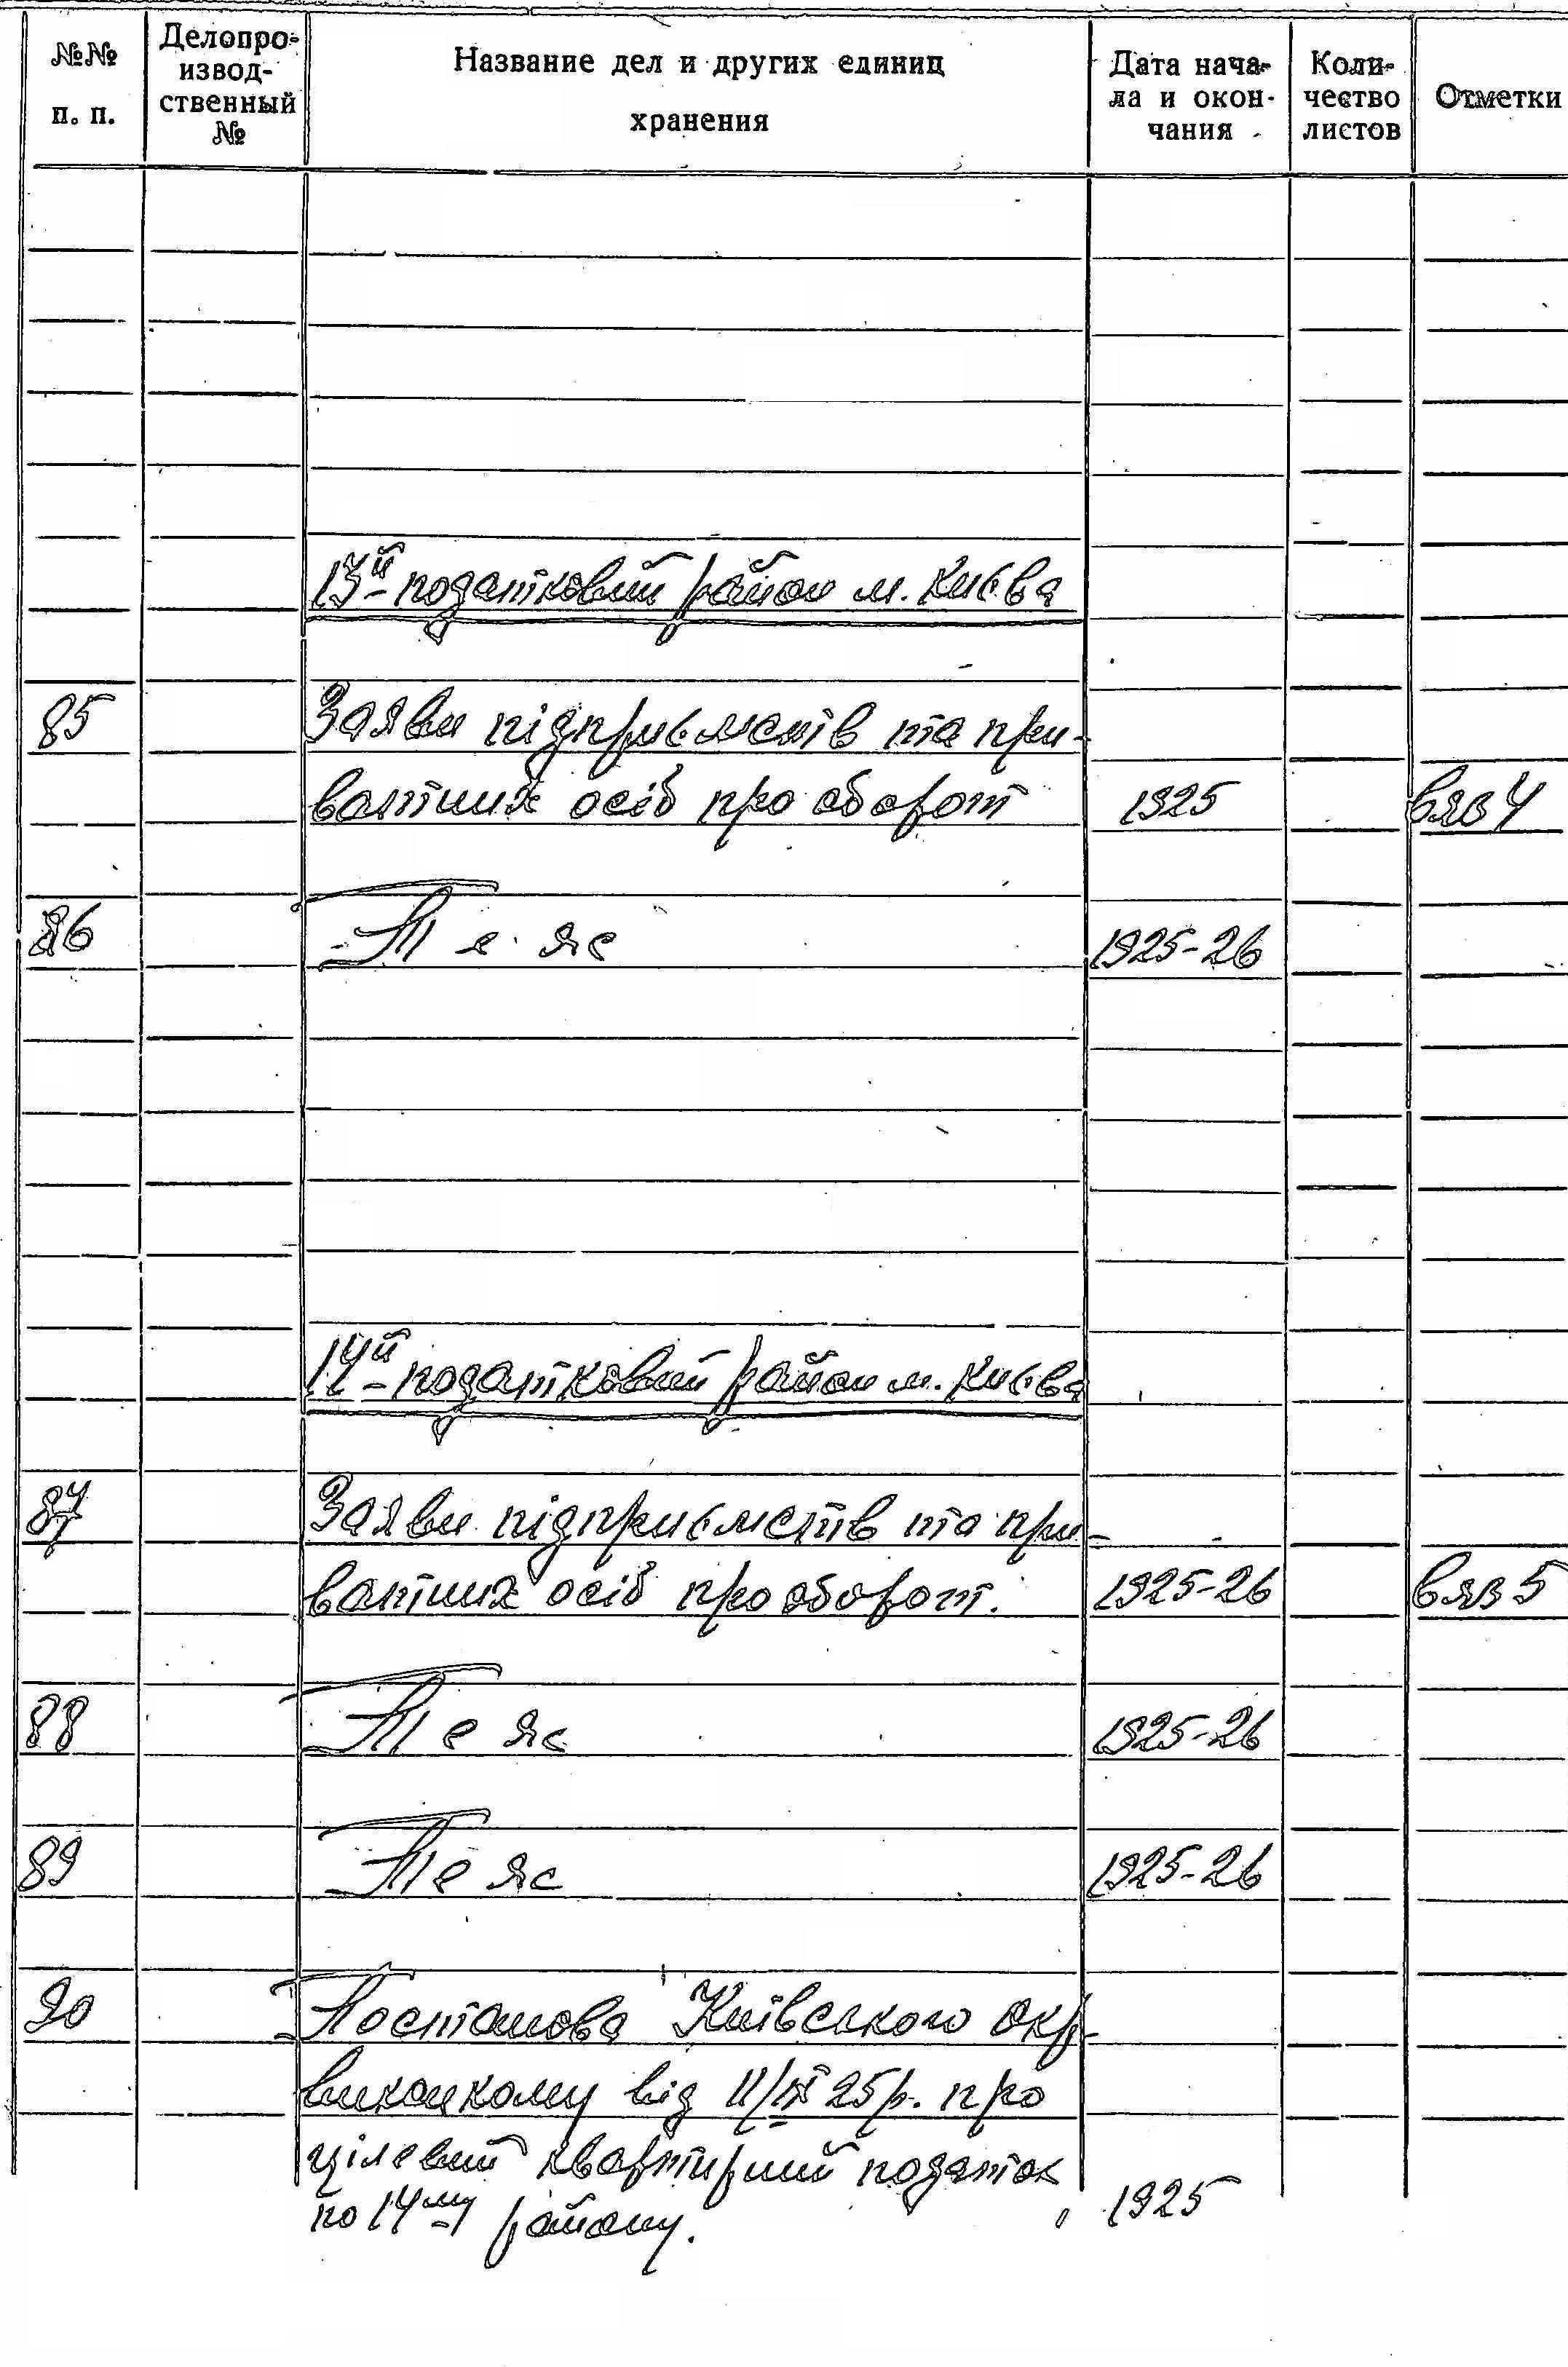 №№ п. п.
Делопро-
извод-
ственный
№
Название дел и других единиц
хранения
Дата нача-
ла и окон-
чания
Коли-
чество
листов
Отметки
13й податковий район м. Києва
85 Заяви підприємств та при-
ватних осіб про оборот 1925 вяз 4
86 Те ж 1925-26
14й податковий район м. Києва
87 Заяви підприємств та при-
ватних осіб про оборот. 1925-26 вяз 5
88 Те ж 1925-26
89 Те ж 1925-26
90 Постанова Київського Окр-
виконкому від 25р. про
цілевий квартирний податок
по 14му району. 1925